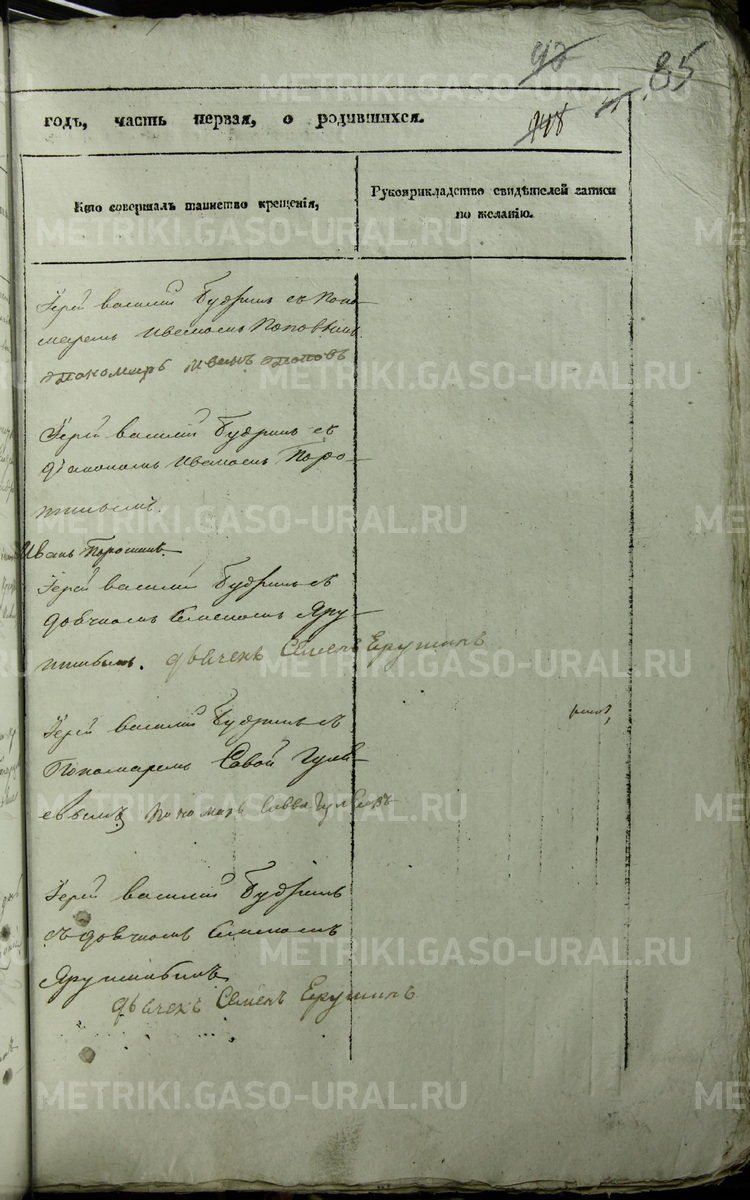 92
85
948
годъ, часть первая, о родившихся.
Кто совершалъ таинство крещенія,
Рукоприкладство свидѣтелей записи
по желанію.
Іерей Василій Будринъ съ Поно-
маремъ Иваномъ Поповымъ
Иванъ Поповъ
Іерей Василій Будринъ съ
діакономъ Иваномъ Поро-
шинымъ.
Иванъ Порошинъ.
Іерей Василій Будринъ съ
дьячкомъ Семеномъ Яру-
шинымъ. дьячекъ Семенъ Ерушинъ
Іерей Василій Будринъ съ
Пономаремъ Савой Гуля-
евымъ Понома Савва Гуляевъ
Іерей Василій Будринъ
съ дьячкомъ Семеномъ
Ярушинымъ
дьячекъ Семенъ Ерушинъ
METRIKI.GASO-URAL.RU